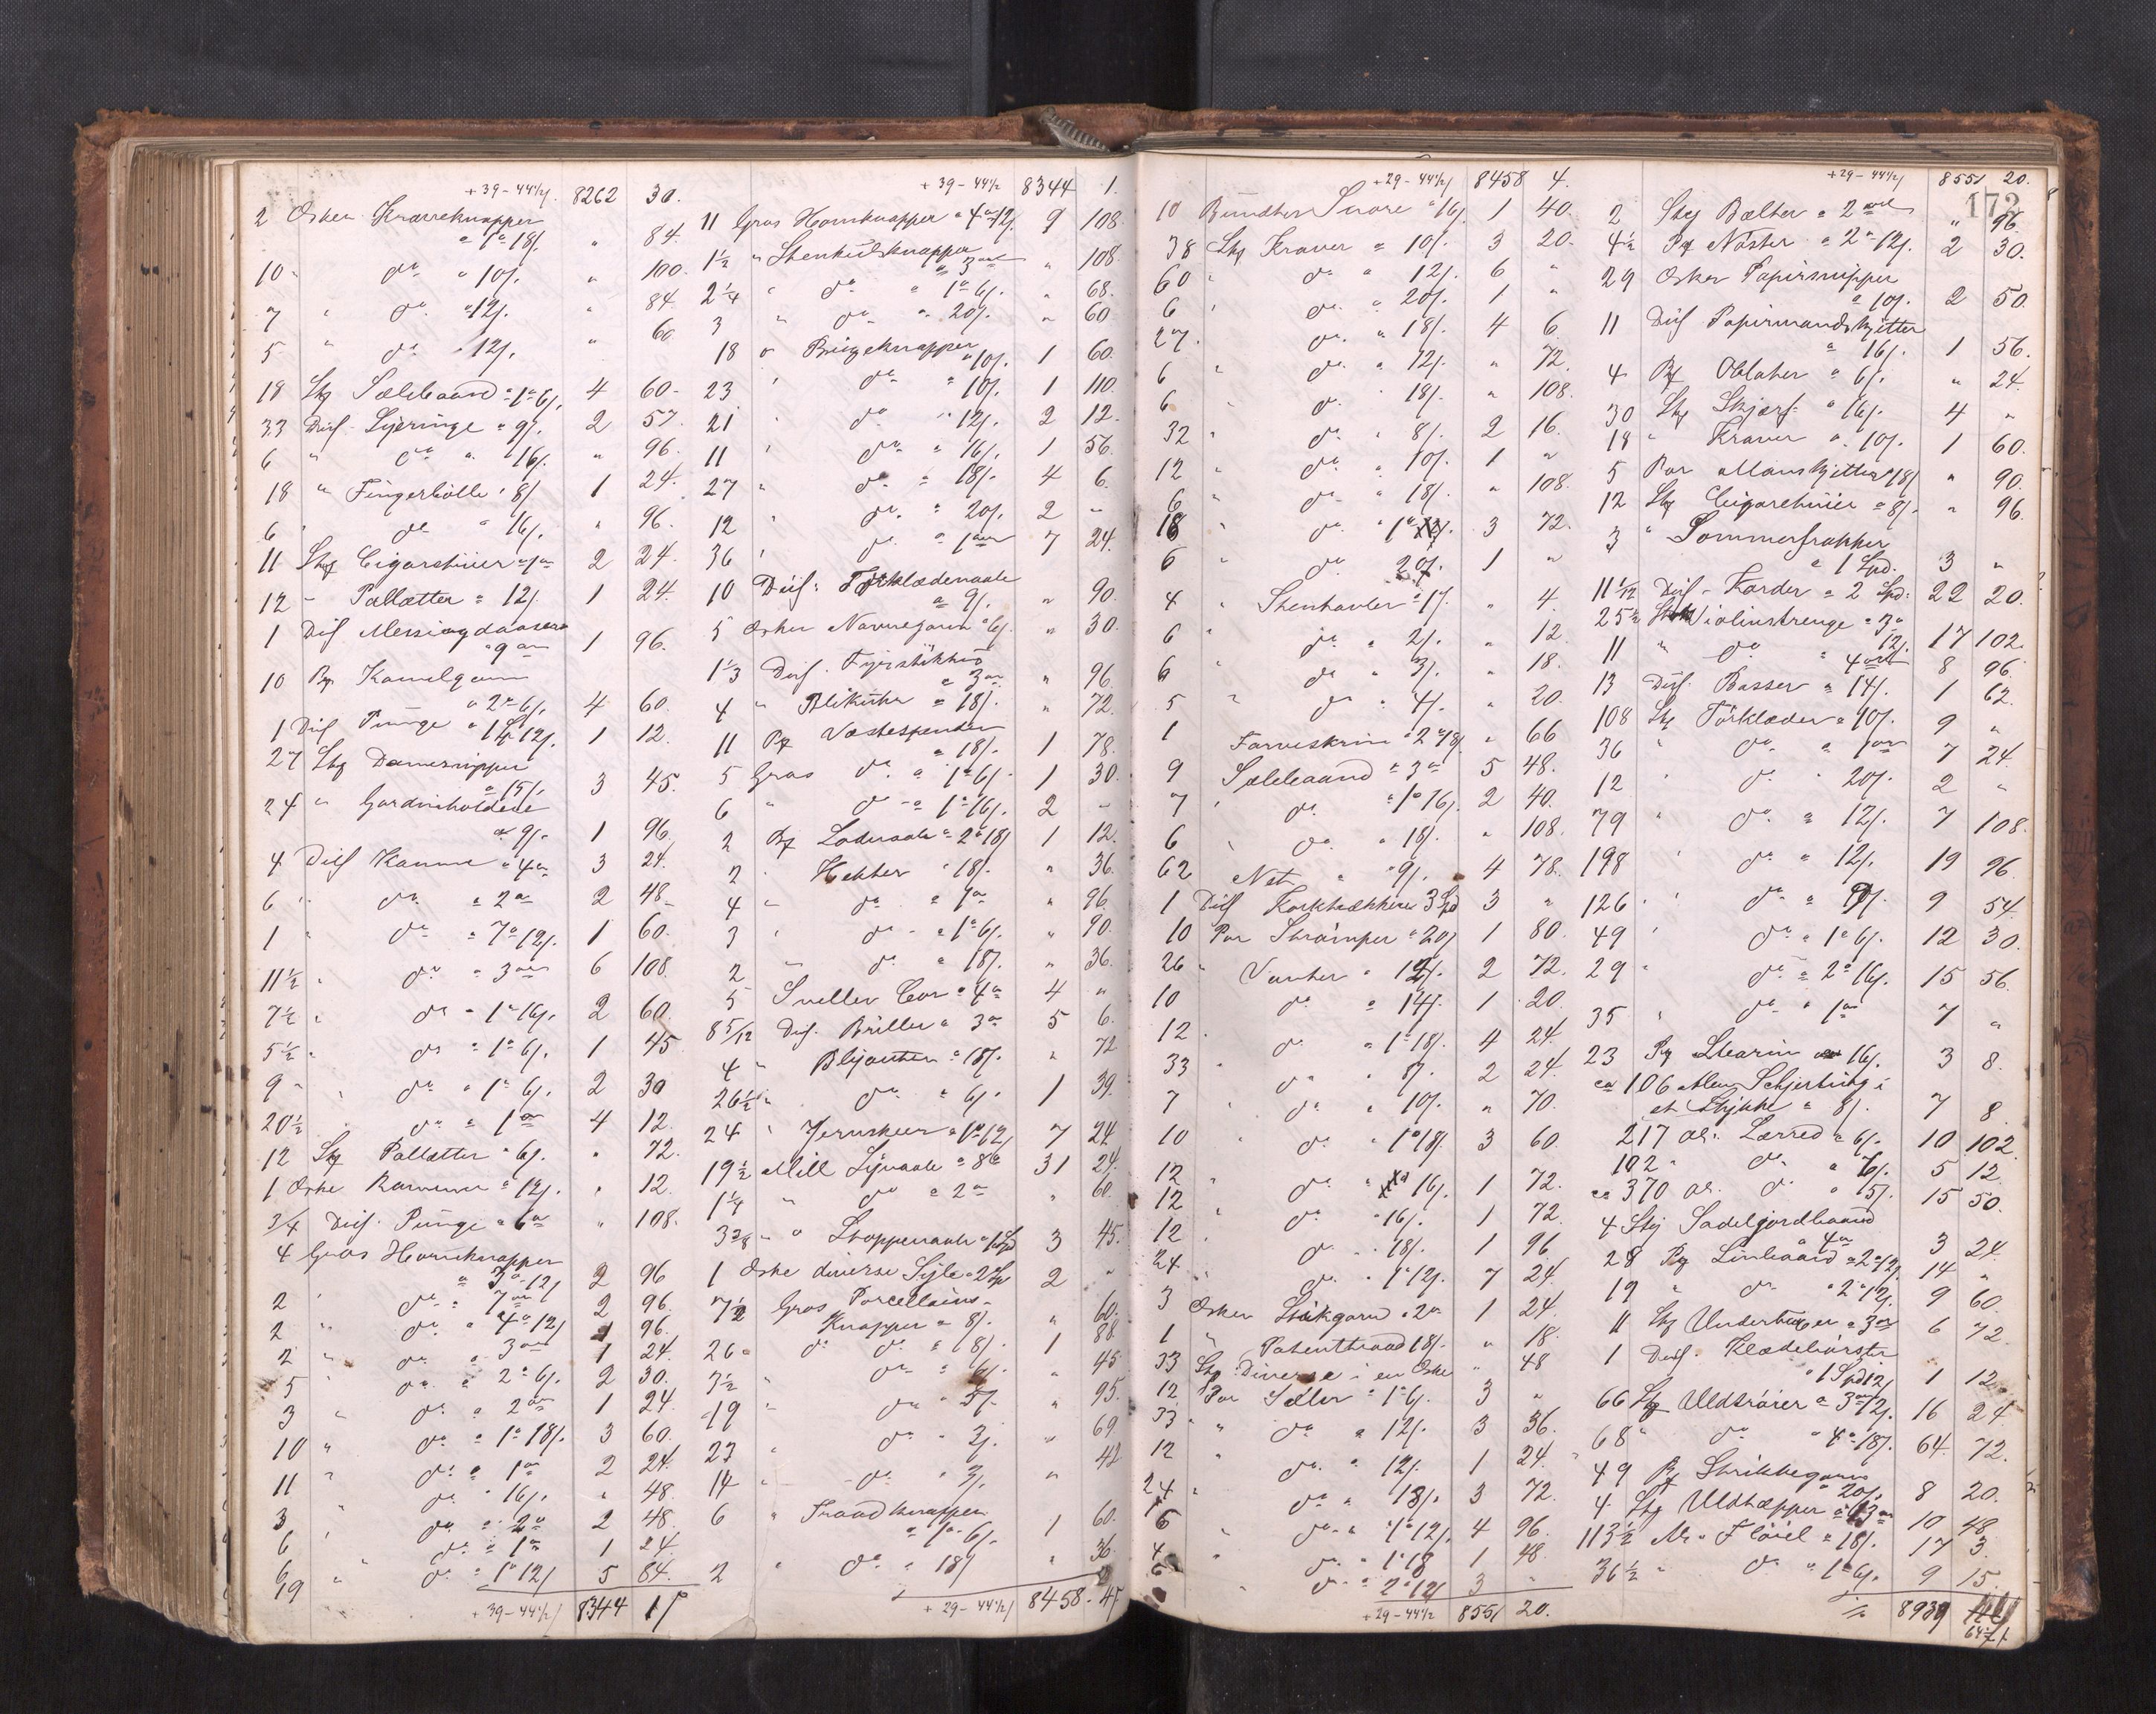 +39-44½/ 8262 30.
2 Æsker Kraveknapper
" 1 " 18/. " 84.
10 " do " 10/. " 100.
7 " do " 12/. " 84.
5 " do " 12/. " 60.
18 Stk Sælebaand " 1 " 6/. 4 60.
33 Dus Syeringe " 9/. 2 57.
6 " do " 16/. " 96.
18 " Fingerbölle " 8/ 1 24.
6 " do " 16/. " 96.
11 Stk Cigarhüier " 1 ort 2 24.
12 " Palletter " 12/. 1 24.
1 Dus Messingdaaser
" 9 ort 1 96.
10 Pk Kamelgarn
" 2 " 6/. 4 60.
1 Dus Punge " 1 Sp 12/. 1 12.
27 Stk Damesnipper
" 15/. 3 45.
24 " Gardinholdere
" 9/. 1 96.
4 Dus Kamme " 4 ort 3 24.
6 " do " 2 ort 2 48.
1 " do " 7 " 12/. 1 60.
11½ " do " 3 ort 6 108.
7½ " do " 1 " 16/. 2 60.
5½ " do " 1 " 6/. 1 45
9 " do " 1 " 6/. 2 30
20½ " do " 1 ort 4 12.
12 Stk Palletter " 6/. " 72.
1 Æske Rammer " 12/. " 12.
3/4 Dus. Punge " 6 ort " 108.
4 Gros Hornknapper
" 3 " 12/ 2 96
2 " do " 7 ort 2 96.
2 " do " 4 " 12/ 1 96.
2 " do " 3 ort 1 24.
5 " do " 2 " 6/. 2 30.
3 " do " 2 ort 1 24.
10 " do " 1 " 18/. 3 60.
11 " do " 1 ort 2 24.
3 " do " 16/. " 48.
6 " do " 2 ort 2 48.
6 " do " 1 ort 1 24.
19 " do " 1 " 12/ 5 84.
+39-44½/ 8344 1
+39-44½ 8344 1.
11 Gros Hornknapper " 4 " 12/. 9 108.
1½ " Stenkulsknapper
" 3 ort " 108.
2¼ " do " 1 " 6/. " 68.
3 " do " 20/. " 60
18 " Buxeknapper
" 10/. 1 60.
23 " do " 10/. 1 110.
21 " do " 12/. 2 12.
11 " do " 16/. 1 56.
27 " do " 18/. 4 6.
12 " do " 20/. 2 "
36 " do " 1 ort 7 24.
10 Dus. Törklædenaale
" 9/. " 90.
5 Æsker Navnegarn " 6/. " 30.
1⅓ Dus. Fyrstikhus
" 3 ort " 96
4 " Blikuhr " 18/. " 72.
11 Pk Vestespender
" 18/. 1 78.
5 Gros do " 1 " 6/. 1 30.
6 " do " 1 " 16/. 2 "
2 Pk Lodernaale " 2 " 18/ 1 12.
2 " Hekter " 18/. " 36.
4 " do " 1 ort " 96
3 " do " 1 " 6/. " 90.
2 " do " 18/. " 36.
5 Sneller Cor " 4 ort 4 "
8 5/12 Dus. Briller " 3 ort 5 6.
4 " Blyanter " 18/. " 72
26½ " do " 6/. 1 39.
24 " Jernskeer " 1 " 12/ 7 24
19½ Mill Synaale " 8 ort 31 24.
1¼ " do " 2 ort " 60.
3⅜ " " Stoppenaale " 1 Spd 3 45.
1 Æske diverse Syle " 2 Sp 2 "
7½ Gros Porcellains-
Knapper " 8/. " 60.
26 " do do " 8/. 1 88
7½ " do " 6/. " 45
19 " do " 5/. " 95.
23 " do " 3/. " 69
14 " do " 3/. " 42
6 " Traadknapper
" 1 " 6/. 1 60.
2 " do " 18/ " 36.
+29-44½/ 8458. 4
+29-44½/ 8458 4.
10 Bundter Snore " 16/. 1 40.
38 Stk Kraver " 10/. 3 20.
60 " do " 12/. 6 "
6 " do " 20/. 1 "
27. do " 18/. 4 6
6 " do " 12/. " 72.
6 do " 18/. " 108.
32 " do " 8/. 2 16.
12 " do " 10/. 1 "
6 " do " 18/. " 108.
18 " do " 1 3 72.
6 " do 20/. 1 "
4 " Stenhavler " 1/. " 4.
6 " do " 2/. " 12.
6 do " 3/. " 18.
5 " do " 4/. " 20.
1 Farveskrin " 2 " 18/ " 66
9 Sælebaand " 3 ort 5 48.
7 " do " 1 " 16/. 2 40.
6 " do " 18/. " 108.
62 Net " 9/. 4 78.
1 Dus Korktrækkere 3 Spd 3 "
10 Par Strömper " 20/ 1 80.
26 " Vanter " 12/. 2 72.
10 do " 14/. 1 20.
12 " do " 1 " 18/. 4 24.
33 " do " 8/. 2 24.
7 " do " 10/. " 70.
10 " do " 1 " 18/ 3 60.
12 " do " 16/. 1 72.
12 " do " 16/. 1 72.
12 " do " 18/. 1 96
24 " do " 1 " 12/. 7 24.
3 Æsker Strikgarn " 2 ort 1 24.
1 " Patenttraad 18/. " 18.
33 Stk Diverse i en Æske " 48
12 Par Sæler " 1 " 6/. 3 "
33 " do " 12/. 3 36.
12 " do " 12/. 1 24.
24 " do " 18/. 3 72.
6 " do " 1 " 12/. 4 96.
4 " do " 1 " 18 1 48.
6 " do " 2 " 12/ 3 "
+29-44½ 8551 20.
+29-44½/ 8551 20.
172
2 Stk Bælter " 2 ort " 96.
4½ Pk Nöster " 2 " 12/. 2 30.
29 Æsker Papirsnipper
" 10/. 2 50.
11 Dus Papirmandskjetter
" 16/. 1 56.
4 Pk Oblater " 6/. " 24.
30 Stk Skjærf " 16/. 4 "
18 " Kraver " 10/. 1 60.
5 Par Manskjetter " 18/ " 90.
12 Stk Cigarehuier " 8/. " 96.
3 " Sommerfrakker
" 1 Spd. 3 "
11 1/12 Dus. Karder " 2 Spd. 22 20.
25½ Stk Violinstrenge " 3 "
12/. 17 102.
11 " do " 4 ort 8 96.
13 Dus. Basser " 14/. 1 62.
108 Stk Törklæder " 10/. 9 "
36 " do " 1 ort 7 24.
12 " do " 20/. 2 "
79 " do " 12/. 7 108.
198 " do " 12/. 19 96
126 " do " 9/. 9 54.
49 " do " 1 " 6/. 12 30.
29 " do " 2 " 16/. 15 56.
35 " do " 1 ort 7 "
23 Pk Stearin " 16/. 3 8.
ca 106 Alen Schjerting i
et Stykke " 8/. 7 8.
217 al. Lærred " 6/. 10 102.
102 " do " 6/. 5 12.
ca 370 al. do " 5/. 15 50.
4 Stk Sadelgjordbaand
" 4 ort 3 24.
28 Pk Linbaand " 2 " 12/. 14 "
19 " do " 2 " 12/. 9 60.
11 Stk Undertröier " 3 ort 6 72.
1 Dus. Klædebörster
" 1 Spd 12/ 1 12.
66 Stk Uldtröier " 3 ort 12/. 16 24
68 " do " 4 " 18/. 64. 72.
49 Pk Strikkegarn
" 20/. 8 20.
4 Stk Uldtæpper " 13 ort 10 48.
113½ Al. Flöiel " 18/. 17 3.
36½ " do " 1 " 6/. 9 15.
8939
64½/